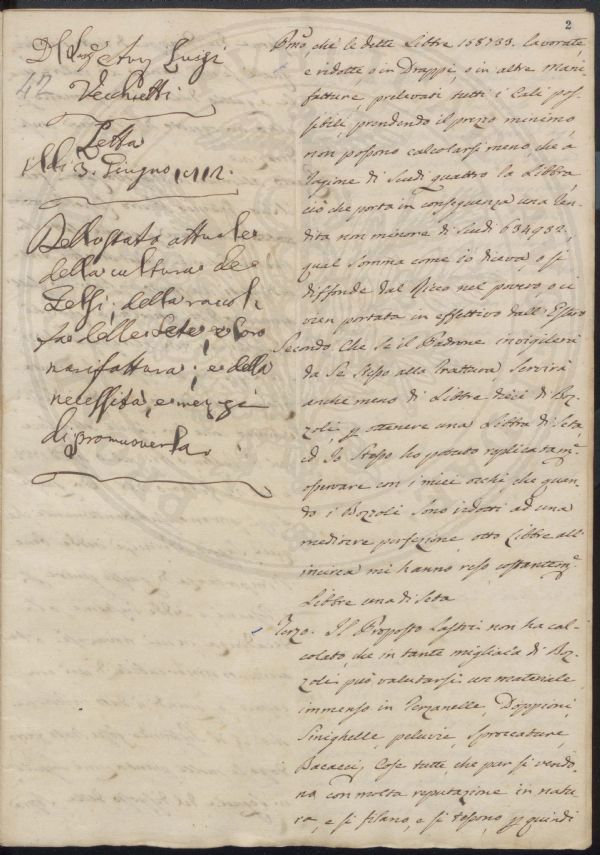 2
Del Sigr. Avv. Luigi
42
Vecchietti
Letta
Alli 3. Giugno 1
Dello stato attuale
della cultura de
Gelsi, della racol
ta delle Sete, e loro
manifattura; e della
necessità, e mezzi
di promuoverla.
Pmo. che le dette Libbre 158733. lavorate,
e ridotte o in Drappi, o in altre Mani
fatture, prelevati tutti i Cali pos-
sibili, prendendo il prezzo minimo,
non possono calcolarsi meno, che a
ragione di Scudi quattro la Libbra
ciò che porta in conseguenza una Ven-
dita non minore di Scudi 634932,
qual somma come io diceva, o si
diffonde dal Ricco nel povero, o ci
vien portata in effettivo dall'Estero
Secondo Che se il Padrone invigilerà
da Se Stesso alla Trattura servirà
anche meno di Libbre dieci di Boz-
zoli, p ottenere una Libbra di Seta,
ed Io Stesso ho potuto replicatamᵉ
osservare con i miei occhi, che quan-
do i Bozzoli sono ridotti ad una
mediocre perfezione otto Libbre all'
incirca mi hanno reso costantemᵉ
Libbre una di Seta
Terzo. Il Proposto Lastri non ha cal-
colato, che in tante migliaia di Boz-
zoli può valutarsi un materiale
immenso in Terzanelle, Doppioni,
Sinighelle, peluzie, Sbroccature,
Bacacci, Cose tutte, che pur si vendo-
no con molta reputazione in natu-
ra, e si filano, e si tessono, p quindi